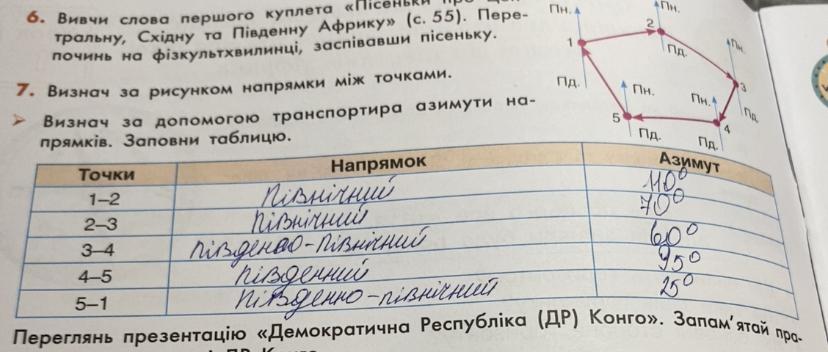 6. Вивчи слова першого куплета «Пісеньки про
тральну, Східну та Південну Африку» (с. 55). Пере-
починь на фізкультхвилинці, заспівавши пісеньку.
7. Визнач за рисунком напрямки між точками.
➤ Визнач за допомогою транспортира азимути на-
прямків. Заповни таблицю.
Пн. Пн.
1 2 Пд. Пн.
Пд. Пн. Пн. 3
5 Пд. 4 Пд.
Пд.
Точки Напрямок Азимут
1–2 Північний 110°
2–3 Північний 70°
3–4 Південно-Північний 60°
4–5 Південний 95°
5–1 Південно-північний 25°
Переглянь презентацію «Демократична Республіка (ДР) Конго». Запам'ятай пра-